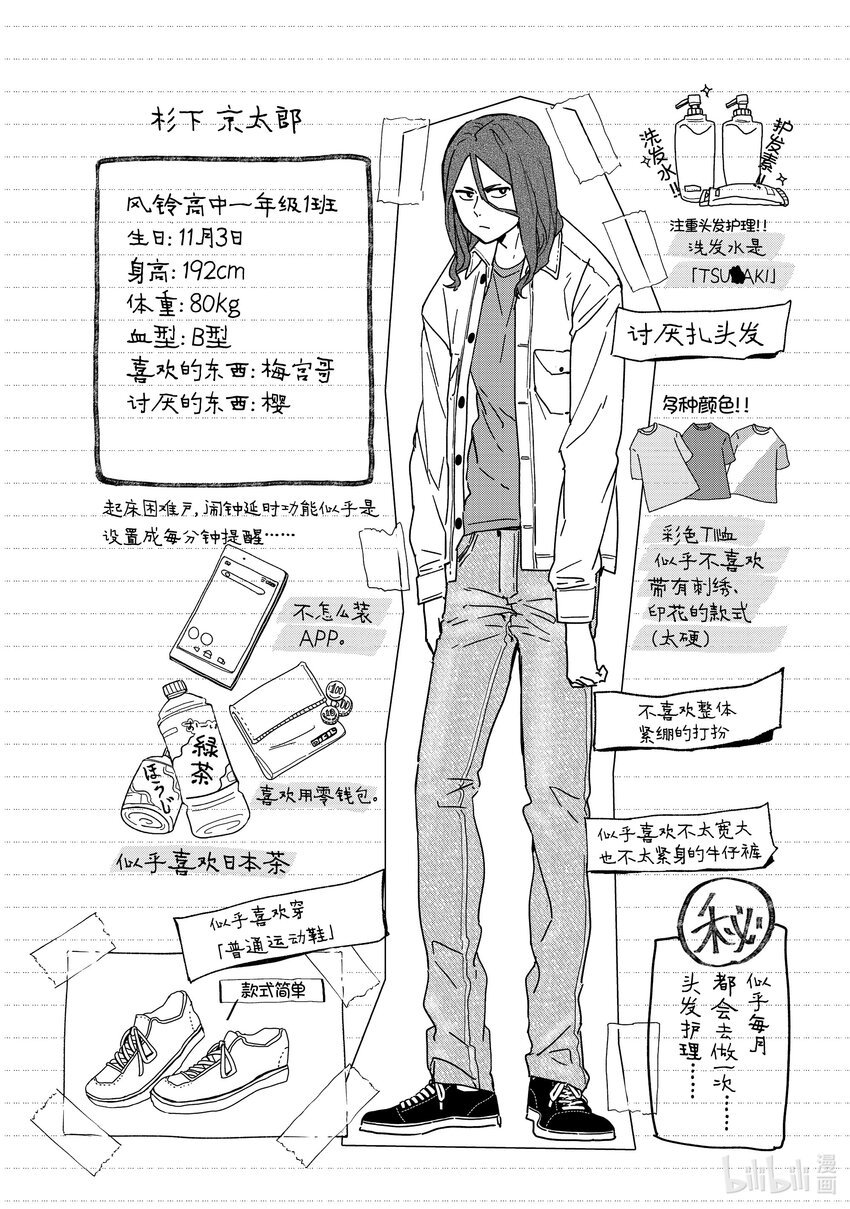 杉下 京太郎
风铃高中一年级1班
生日:11月3日
身高:192cm
体重:80kg
血型:B型
喜欢的东西:梅宫哥
讨厌的东西:樱
起床困难户,闹钟延时功能似乎是
设置成每分钟提醒……
不怎么装
APP。
100
緑茶
ほうじ
喜欢用零钱包。
似乎喜欢日本茶
似乎喜欢穿
「普通运动鞋」
款式简单
洗发水!!
护发素!!
注重头发护理!!
洗发水是
「TSU AKI」
讨厌扎头发
多种颜色!!
彩色T恤
似乎不喜欢
带有刺绣、
印花的款式
(太硬)
不喜欢整体
紧绷的打扮
似乎喜欢不太宽大
也不太紧身的牛仔裤
秘
似乎每月
都会去做一次……
头发护理……
bilibili 漫画